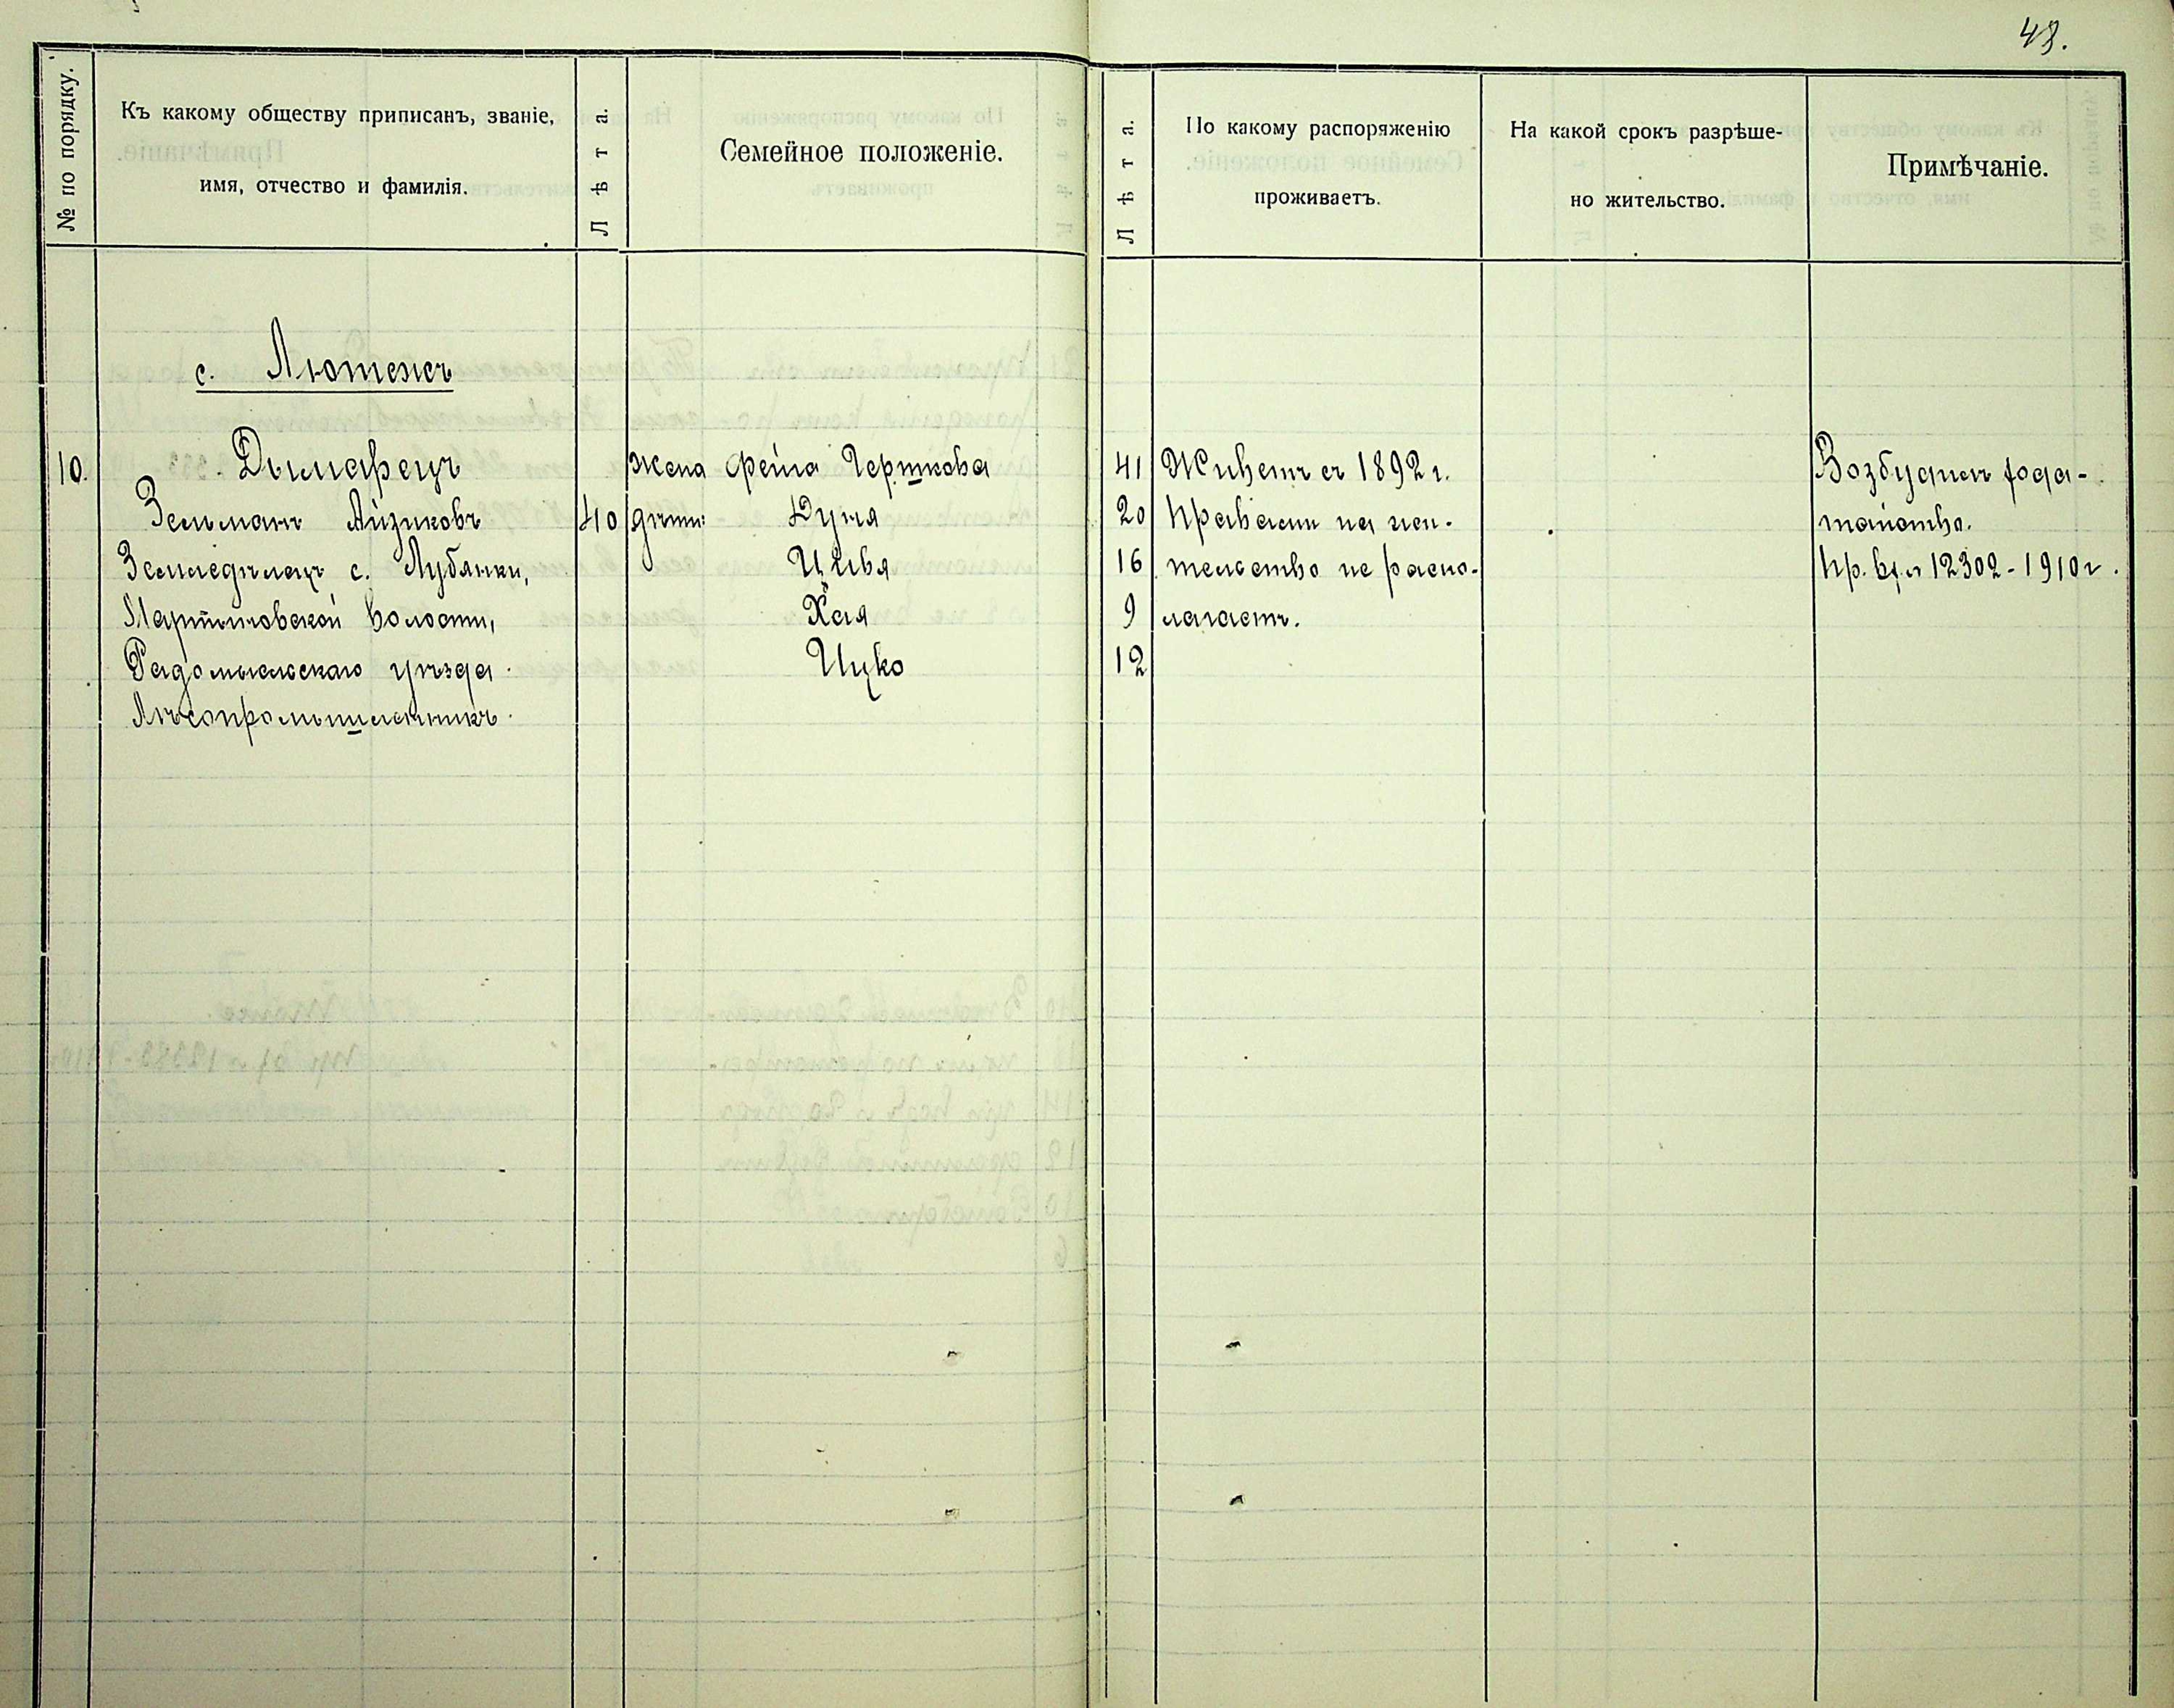 48.
№ по порядку.
Къ какому обществу приписанъ, званіе,
имя, отчество и фамилія.
Лѣта.
Семейное положеніе.
Лѣта.
По какому распоряженію
проживаетъ.
На какой срокъ разрѣше-
но жительство.
Примѣчаніе.
с. Лютежъ
10. Дымарецъ
Зельманъ Айзиковъ 40
Земледѣлецъ с. Лубянки,
Мартыновской волости,
Радомысльскаго уѣзда.
Лѣсопромышленникъ.
жена Фейга Гершкова 41
дѣти: Дуня 20
Цивья 16
Хая 9
Ицко 12
Живетъ съ 1892 г.
Правами на жи-
тельство не распо-
лагаетъ.
Возбудилъ хода-
тайство.
Пр. вх. 12302-1910 г.